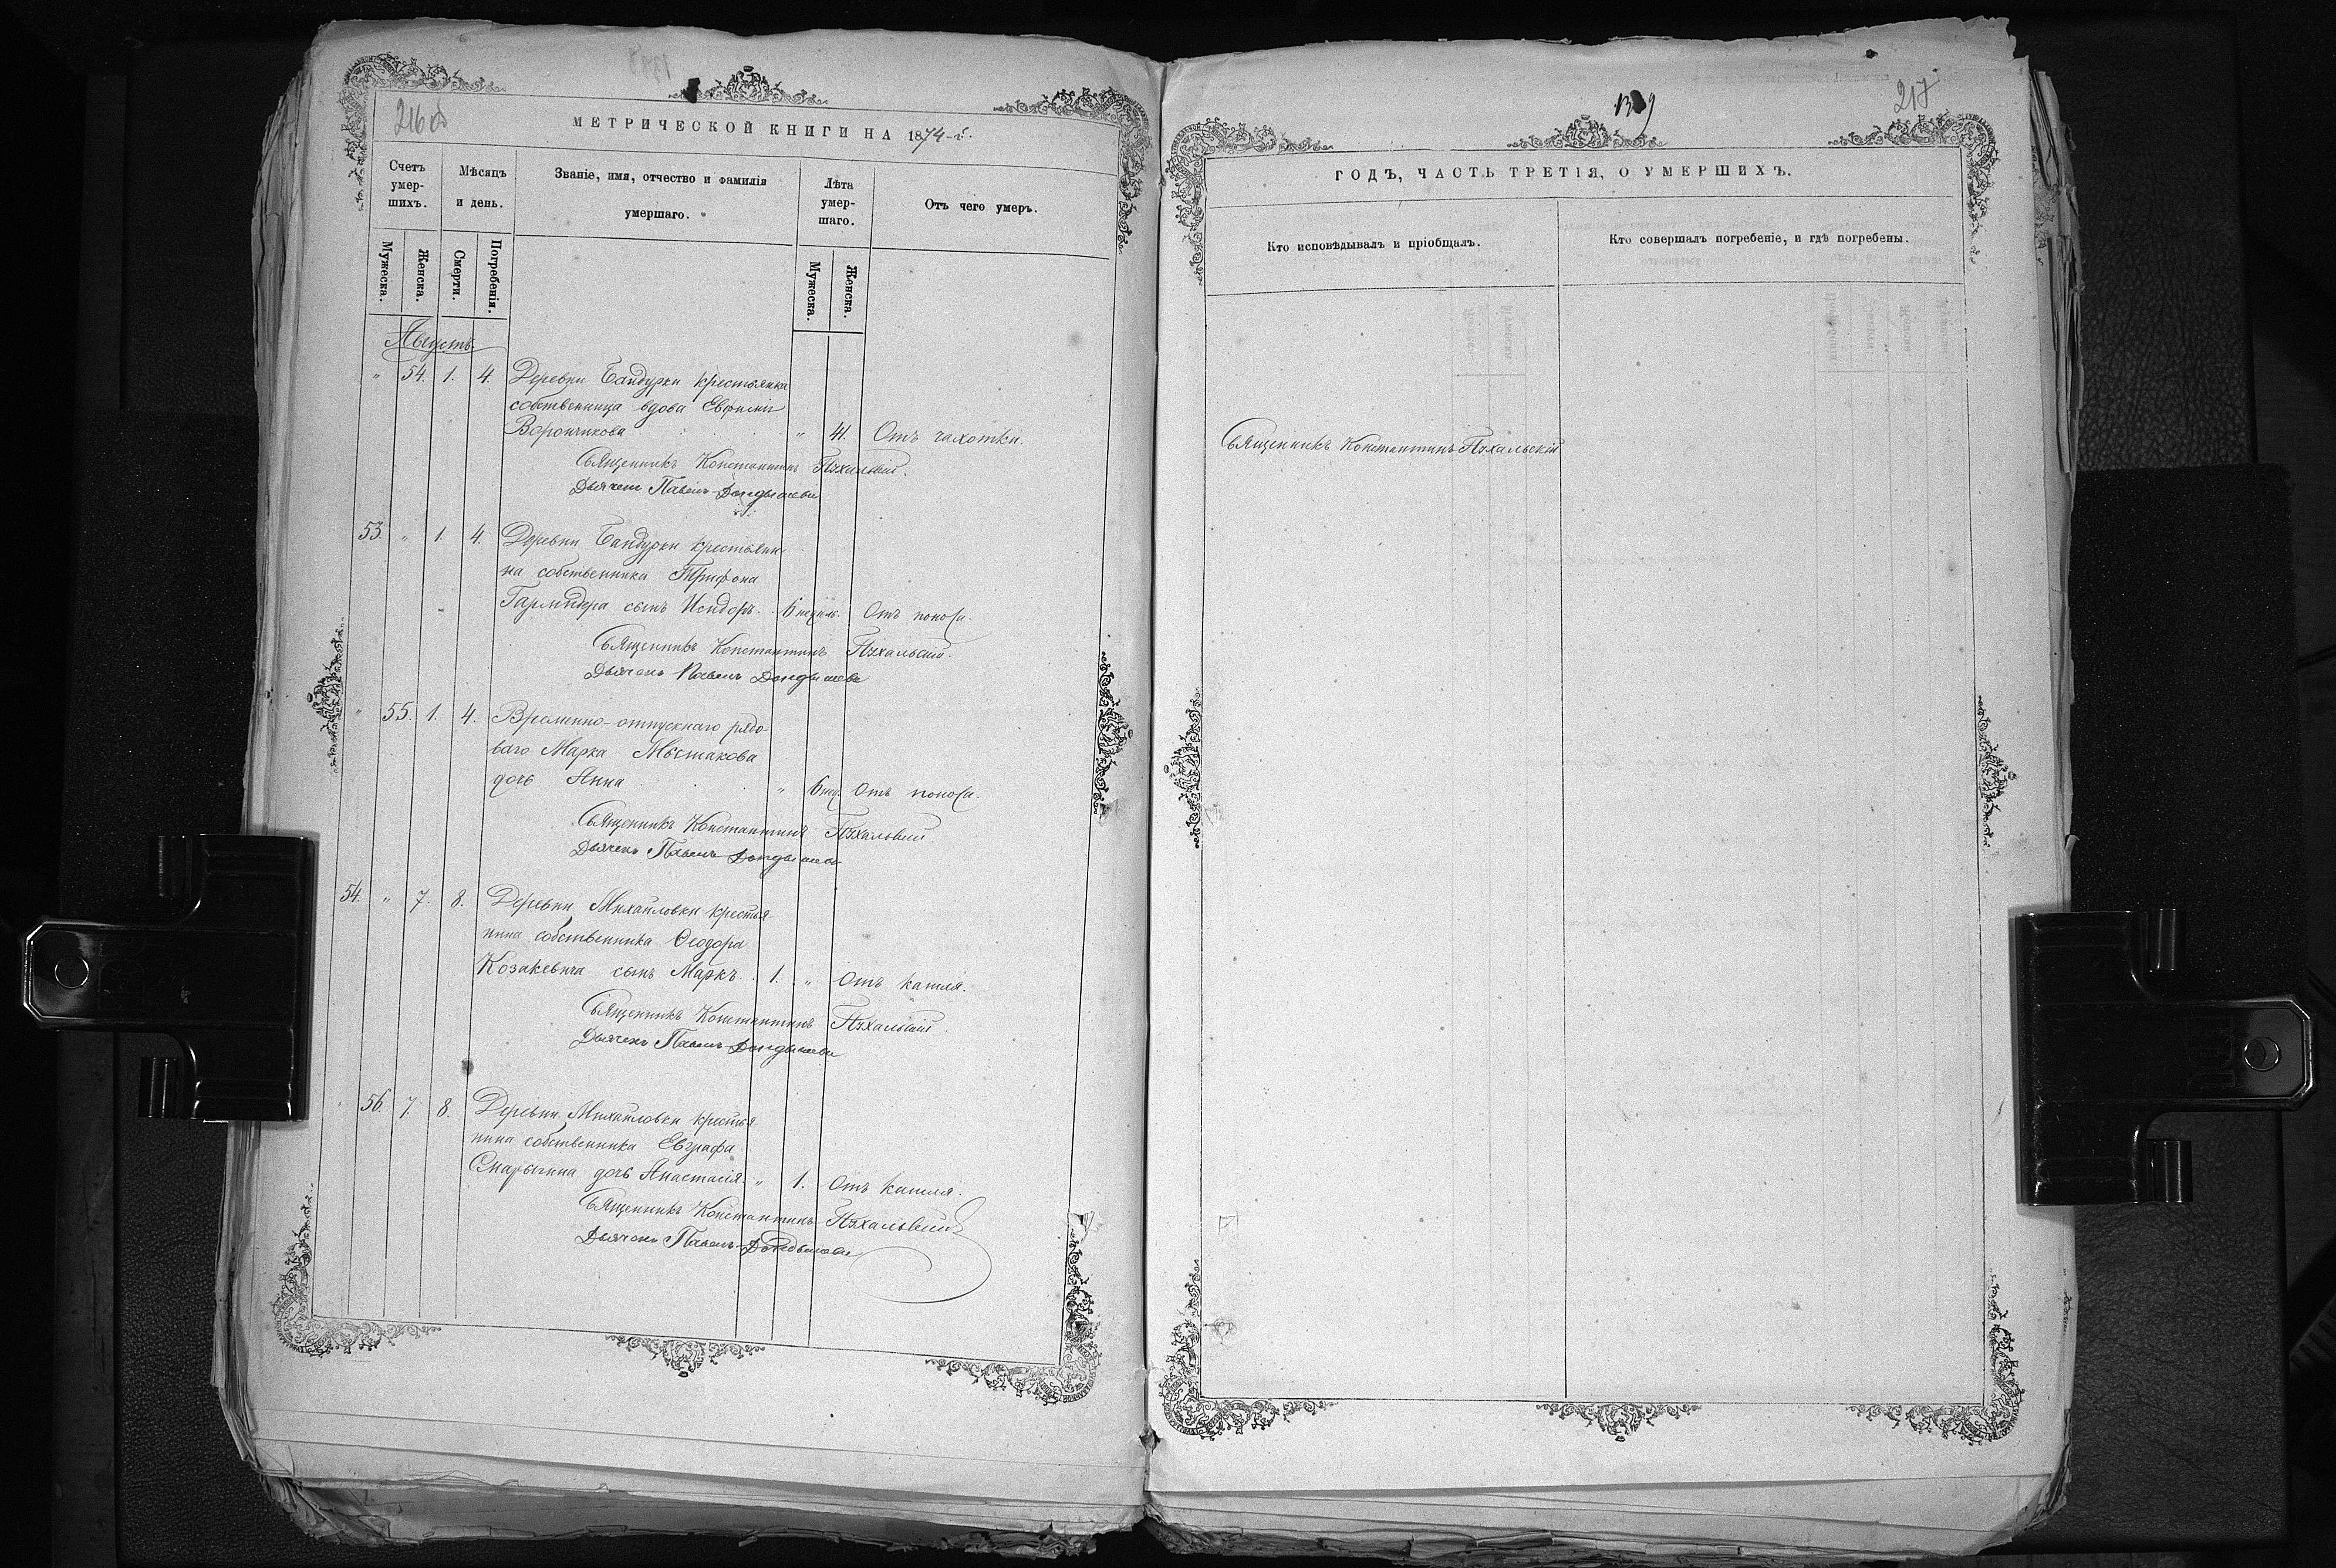 216 об
МЕТРИЧЕСКОЙ КНИГИ НА 1874-й.
Счетъ умер-шихъ.
Мѣсяцъ и день.
Званіе, имя, отчество и фамилія умершаго.
Лѣта умер-шаго.
Отъ чего умеръ.
Мужеска. Женска. Смерти. Погребенія. Мужеска. Женска.
Августъ
" 54. 1. 4. Деревни Бандурки крестьянка
собственница вдова Евфимія
Ворончикова " 41. Отъ чахотки.
Священникъ Константинъ
Дьячекъ Павелъ
53. " 1. 4. Деревни Бандурки крестьяни-
на собственника Трифона
сынъ Исидоръ. 6 недѣль. Отъ поноса.
Священникъ Константинъ
Дьячекъ Павелъ
" 55. 1. 4. Временно-отпускнаго рядо-
ваго Марка
дочь Анна " 6 нед. Отъ поноса.
Священникъ Константинъ
Дьячекъ Павелъ
54. " 7. 8. Деревни Михайловки крестья-
нина собственника Ѳеодора
Козакевича сынъ Маркъ. 1. " Отъ кашля.
Священникъ Константинъ
Дьячекъ Павелъ
" 56. 7. 8. Деревни Михайловки крестья-
нина собственника Евграфа
дочь Анастасія. " 1. Отъ кашля.
Священникъ Константинъ
Дьячекъ Павелъ
217
ГОДЪ, ЧАСТЬ ТРЕТІЯ, О УМЕРШИХЪ.
Кто исповѣдывалъ и пріобщалъ.
Кто совершалъ погребеніе, и гдѣ погребены.
Священникъ Константинъ